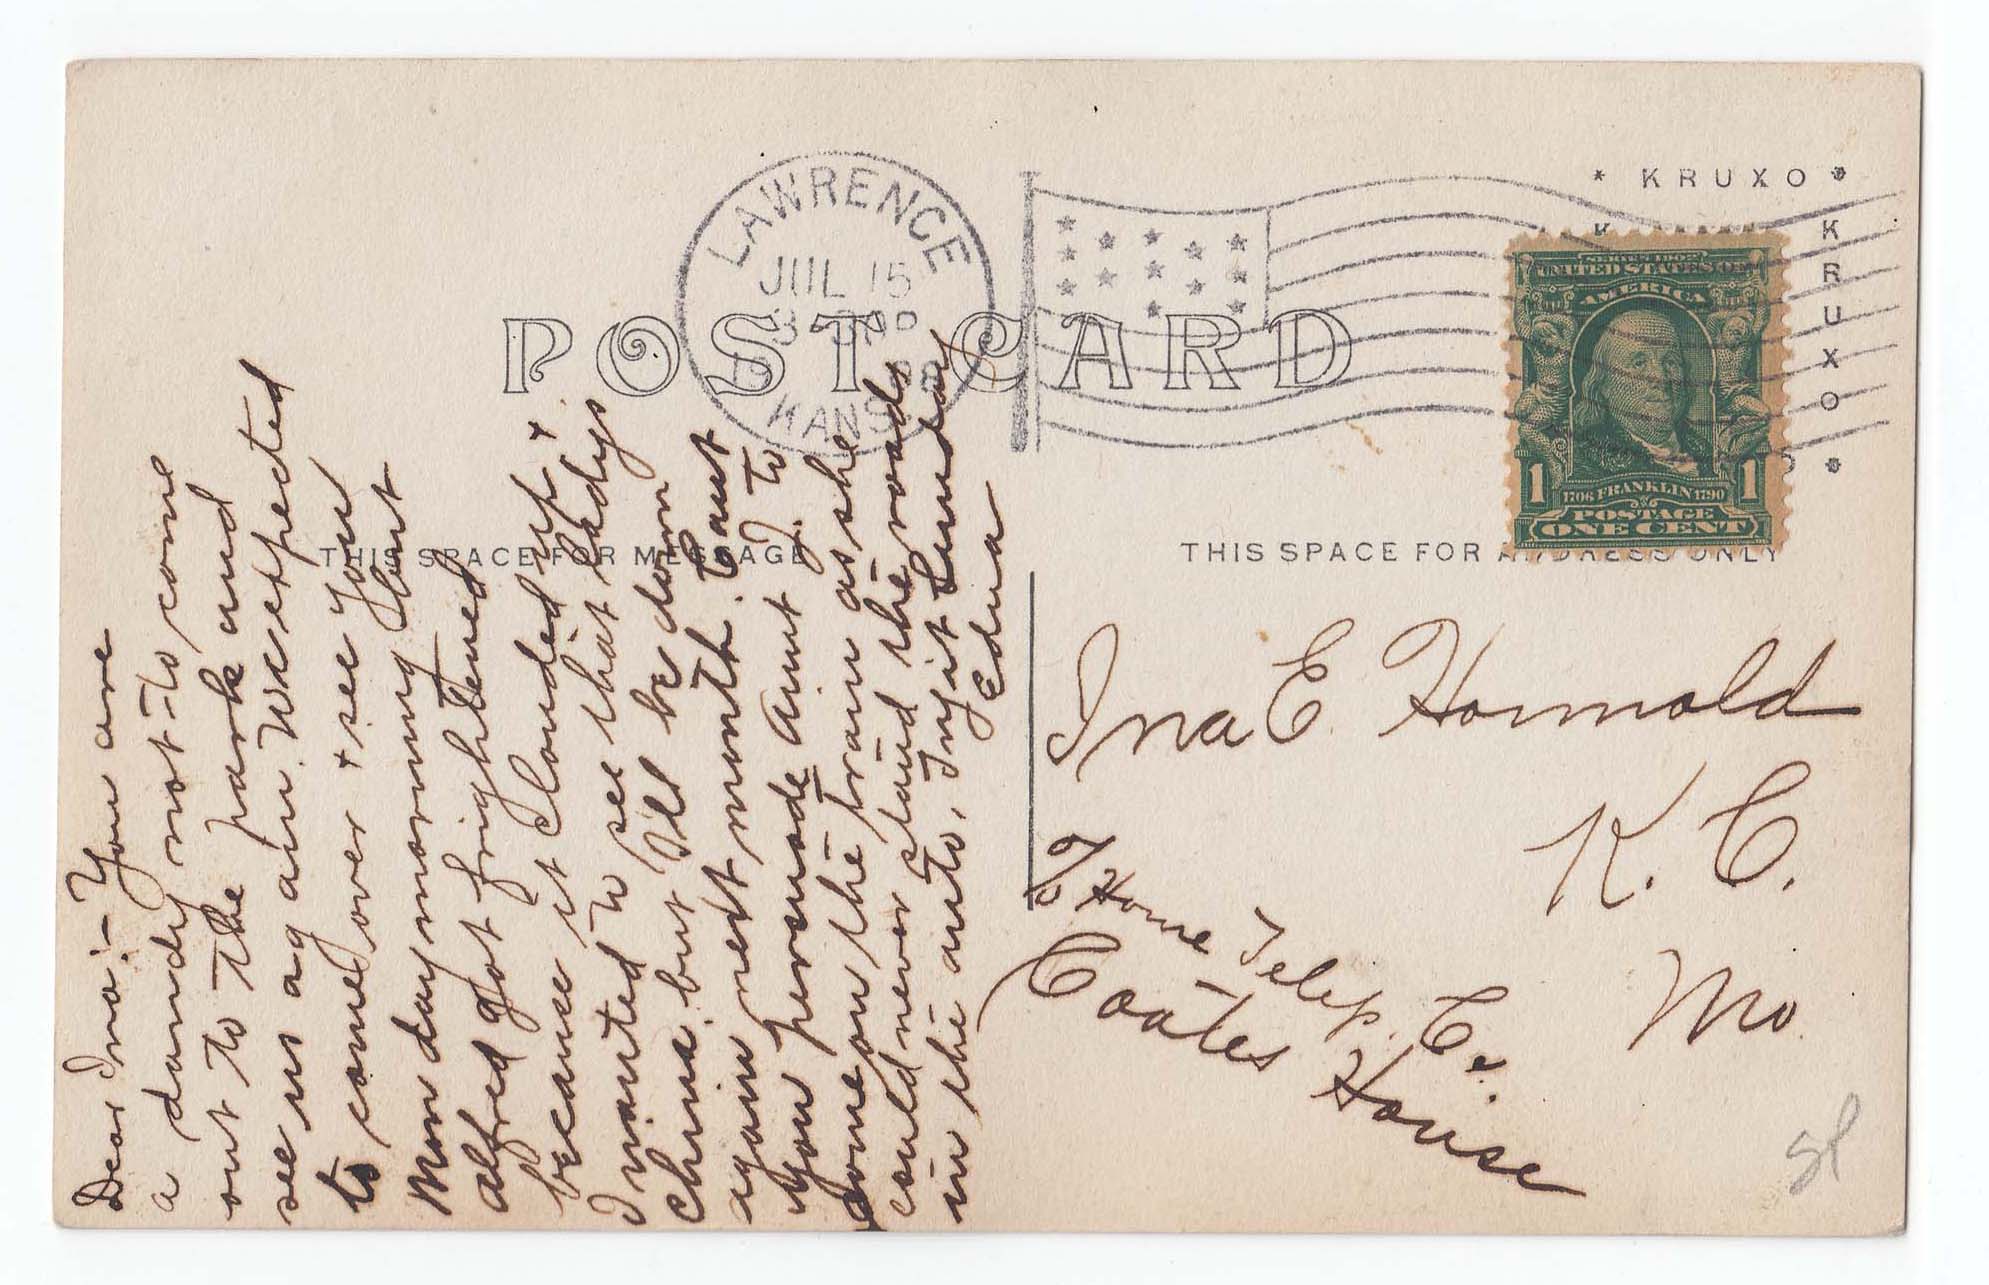 Dear Ina:- You are
a dandy not to come
out to the park and
see us again. We expected
to come over + see you
Monday morning but
Alfred got frightened
because it clouded up +
I wanted to see that ladys
china, but I'll be down
again next month. Can't
you persuade Aunt J. to
come on the train as she
could never stand the roads
in the auto. Insist
Edna
POST CARD
THIS SPACE FOR MESSAGE
THIS SPACE FOR ADDRESS ONLY
LAWRENCE
JUL 15
KANS
* KRUXO *
KRUXO
SERIES 1902
UNITED STATES OF
AMERICA
1706 FRANKLIN 1790
1 1
POSTAGE
ONE CENT
Ina E. Hornold
K. C.
Mo.
% Home Telep. Co.
Coates House